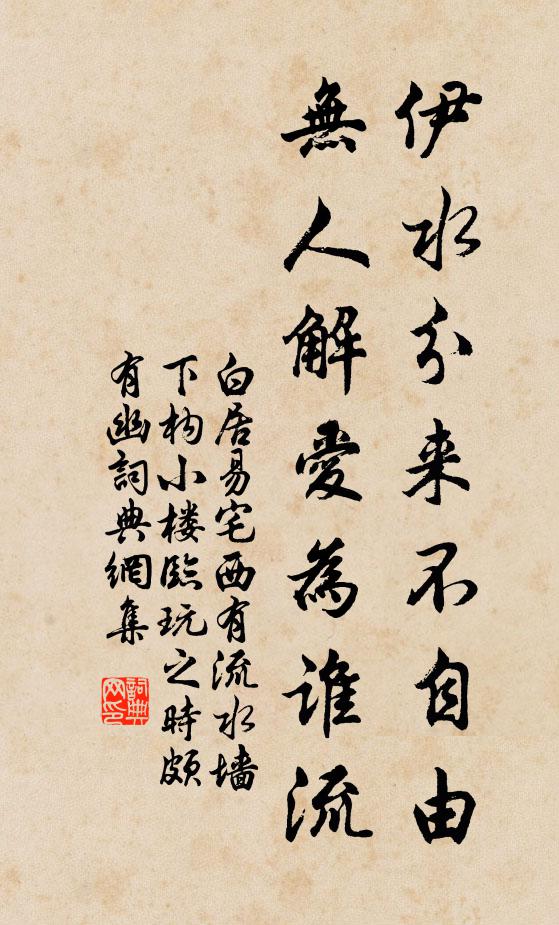 伊水分来不自由
無人解愛為誰流
白居易宅西有流水墙
下构小楼臨玩之時頗
有幽詞典網集
詞典网印